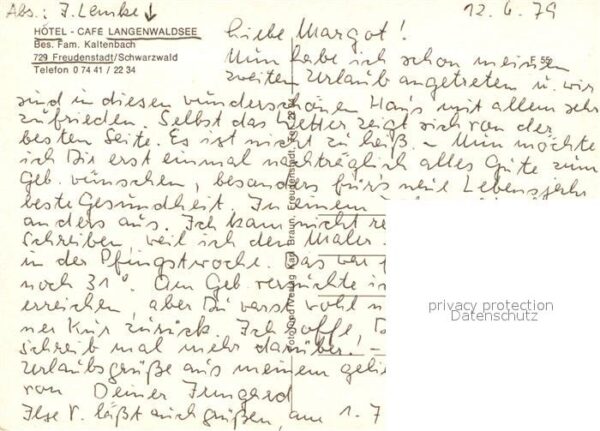 Abs.: I. Lemke
12.6.79
HOTEL - CAFÉ LANGENWALDSEE
Bes. Fam. Kaltenbach
729 Freudenstadt/Schwarzwald
Telefon 0 74 41 / 22 34
Liebe Margot!
Nun habe ich schon meinen
zweiten Urlaub angetreten u. wir
sind in diesen wunderschönen Haus mit allem sehr
zufrieden. Selbst das Wetter zeigt sich von der
besten Seite. Es ist nicht zu heiß. – Nun möchte
ich Dir erst einmal nachträglich alles Gute zum
Geb. wünschen, besonders für's neue Lebensjahr
beste Gesundheit. In einem
anders aus. Ich kam nicht
schreiben, weil ich den Maler
in der Pfingstwoche. Das war
noch 31°. Am Geb. versuchte ich
erreichen, aber Du warst wohl
ner Kur zurück. Ich hoffe,
schreib mal mehr darüber. –
Urlaubsgrüße aus meinem
von Deiner Irmgard
Ilse V. läßt auch grüßen, am 1.7
Foto und Verlag Karl Braun, Freudenstadt, Tel. 22
privacy protection
Datenschutz